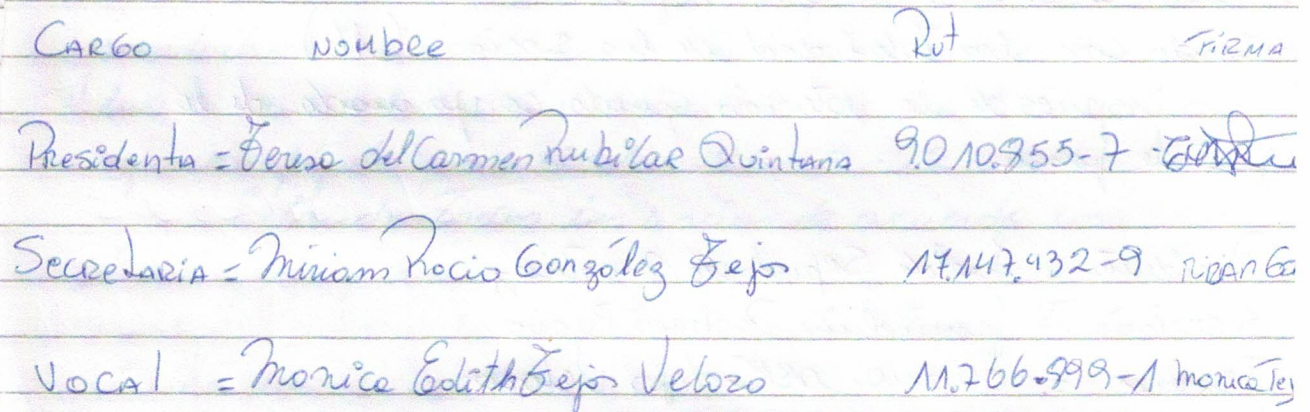 CARGO NOMBRE Rut FIRMA
Presidenta = Teresa del Carmen Rubilar Quintana 9.010.855-7
Secretaria = Miriam Rocio González Tejos 17.147.432-9
Vocal = Monica Edith Tejos Velozo 11.766.899-1 Monica Tej